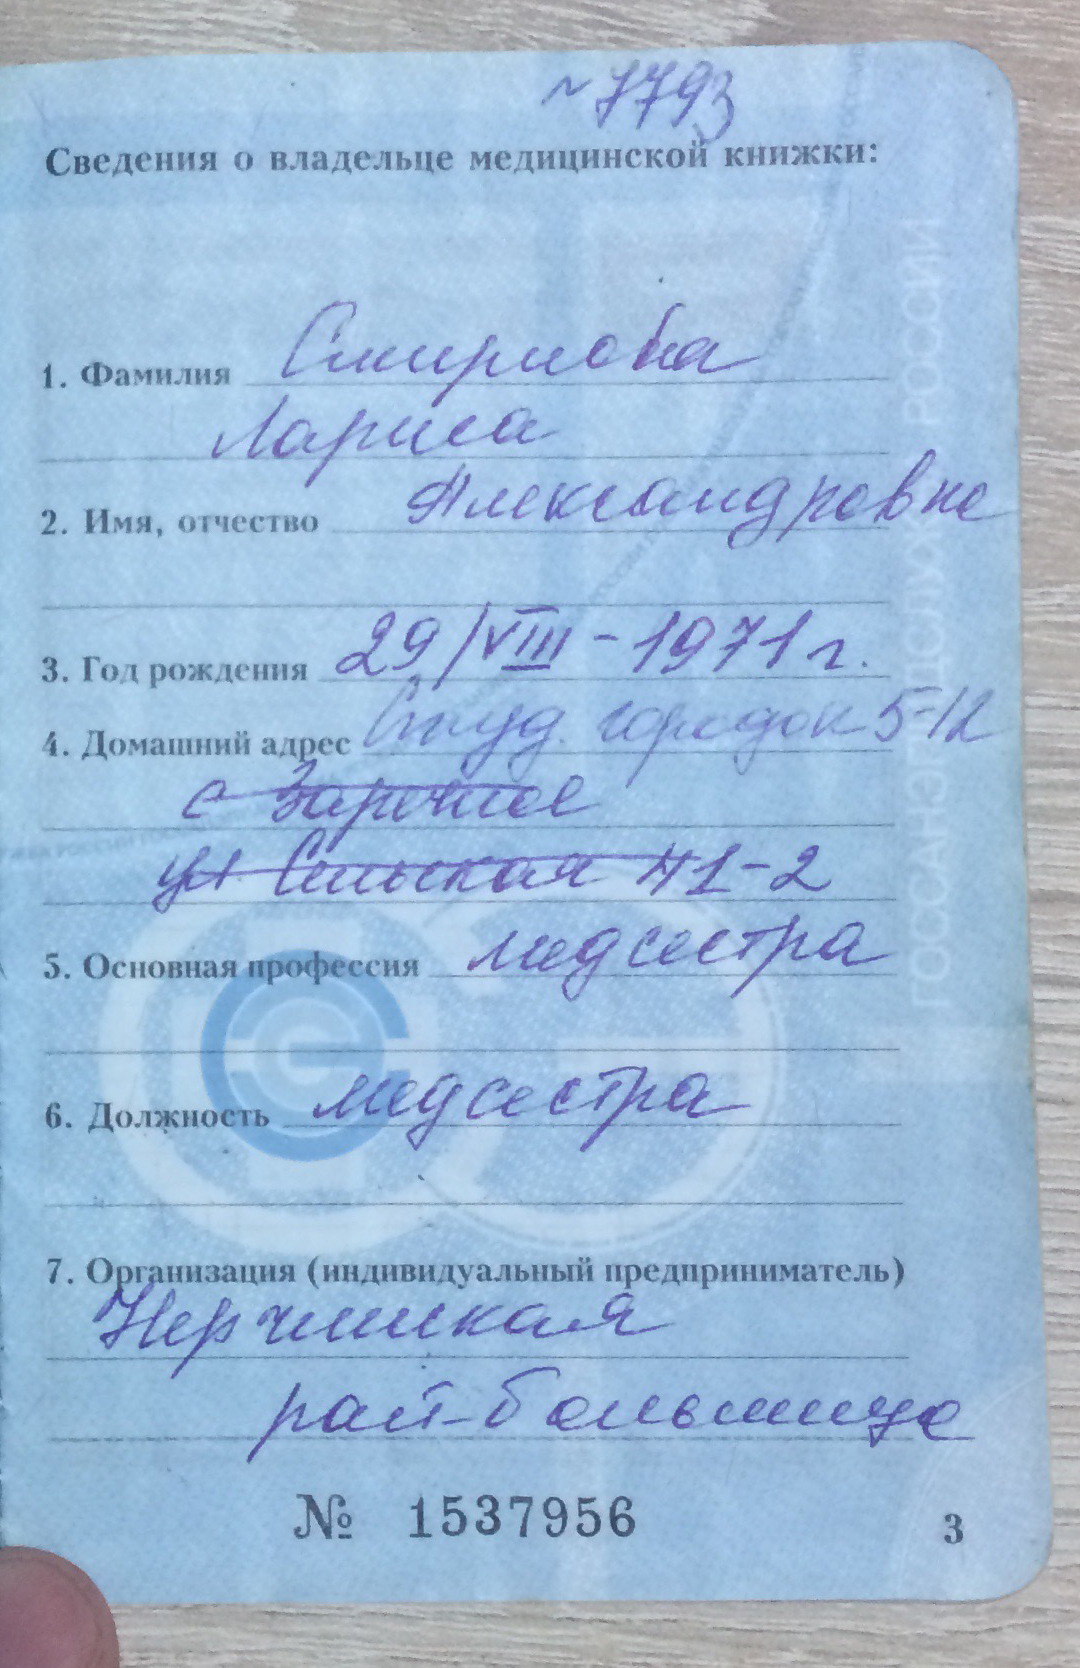 ~ 7793
Сведения о владельце медицинской книжки:
1. Фамилия Смирнова
Лариса
2. Имя, отчество Александровна
3. Год рождения 29/VIII - 1971 г.
4. Домашний адрес Студ. городок 5-12
с Заречное
ул Сельская 41-2
5. Основная профессия медсестра
6. Должность медсестра
7. Организация (индивидуальный предприниматель)
Нерчинская
рай-больница
№ 1537956
3
ГОССАНЭПИДСЛУЖБА РОССИИ